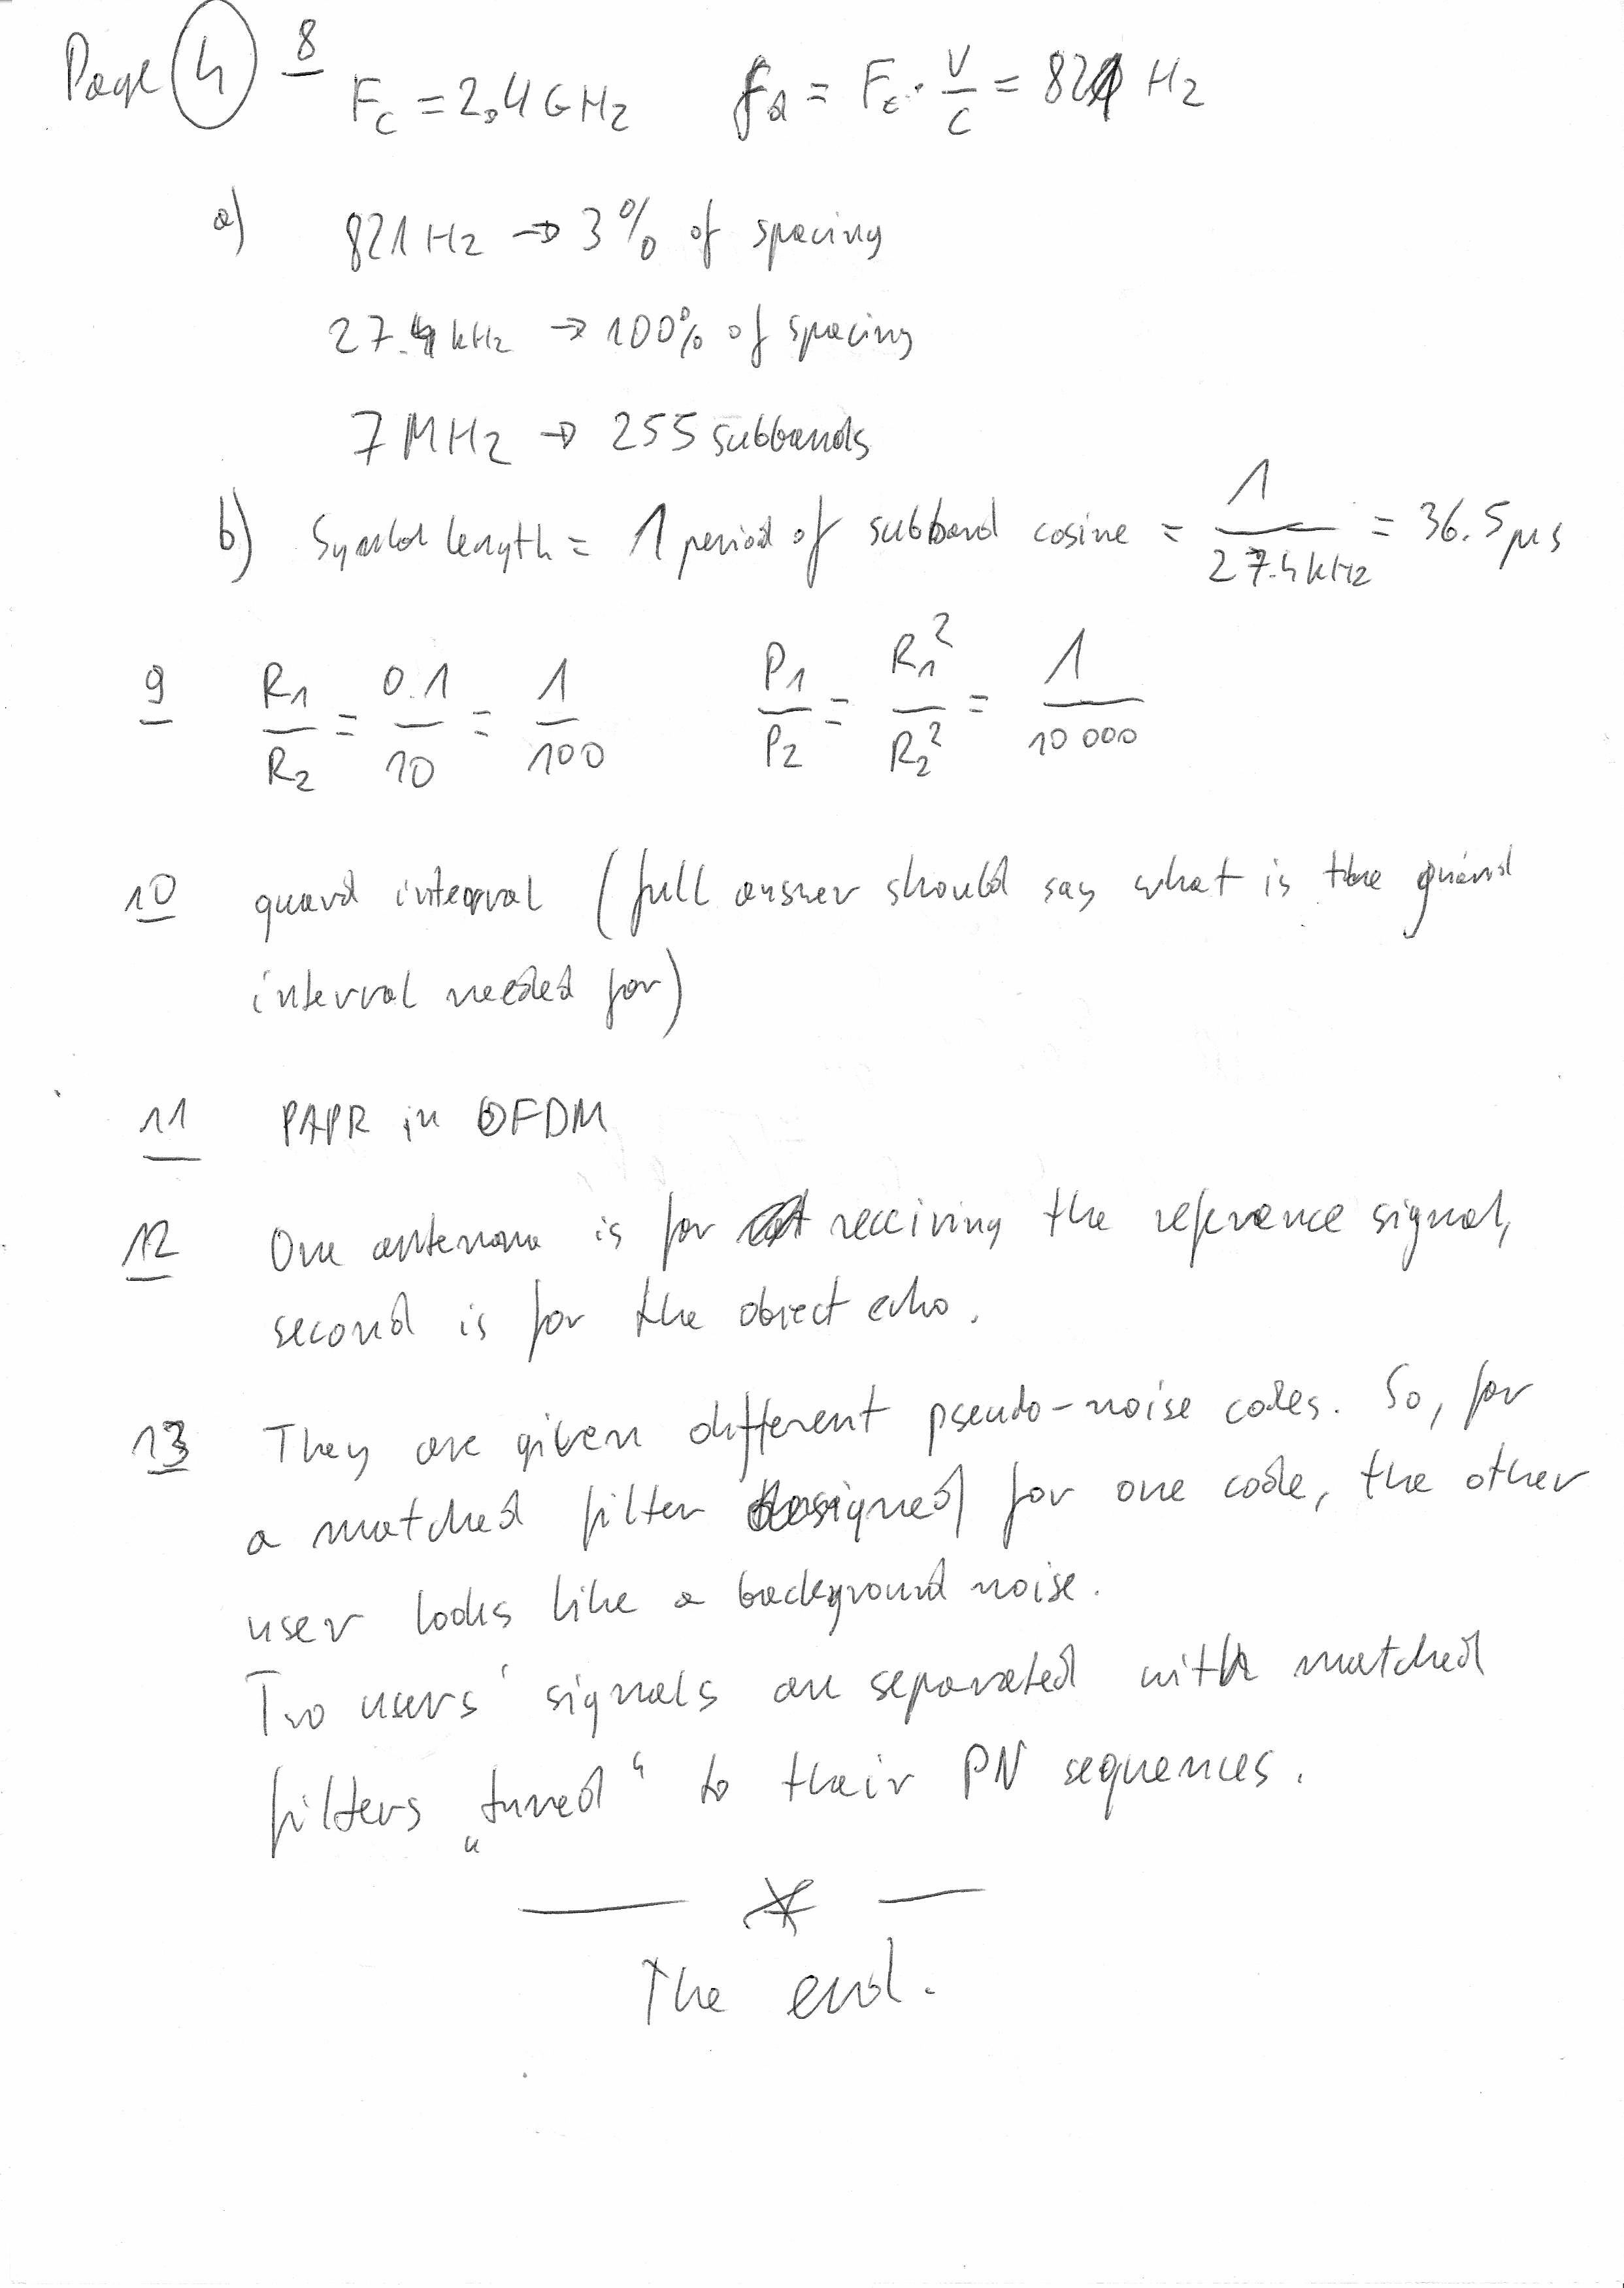 Page 4 8
Fc = 2.4 GHz fd = Fc · v/c = 821 Hz
a) 821 Hz → 3% of spacing
27.4 kHz → 100% of spacing
7 MHz → 255 subbands
b) Symbol length = 1 period of subband cosine = 1/27.4 kHz = 36.5 μs
9 R1/R2 = 0.1/10 = 1/100 P1/P2 = R1²/R2² = 1/10 000
10 guard interval (full answer should say what is the guard
interval needed for)
11 PAPR in OFDM
12 One antenna is for receiving the reference signal,
second is for the object echo.
13 They are given different pseudo-noise codes. So, for
a matched filter designed for one code, the other
user looks like a background noise.
Two users' signals are separated with matched
filters „tuned" to their PN sequences.
— * —
The end.